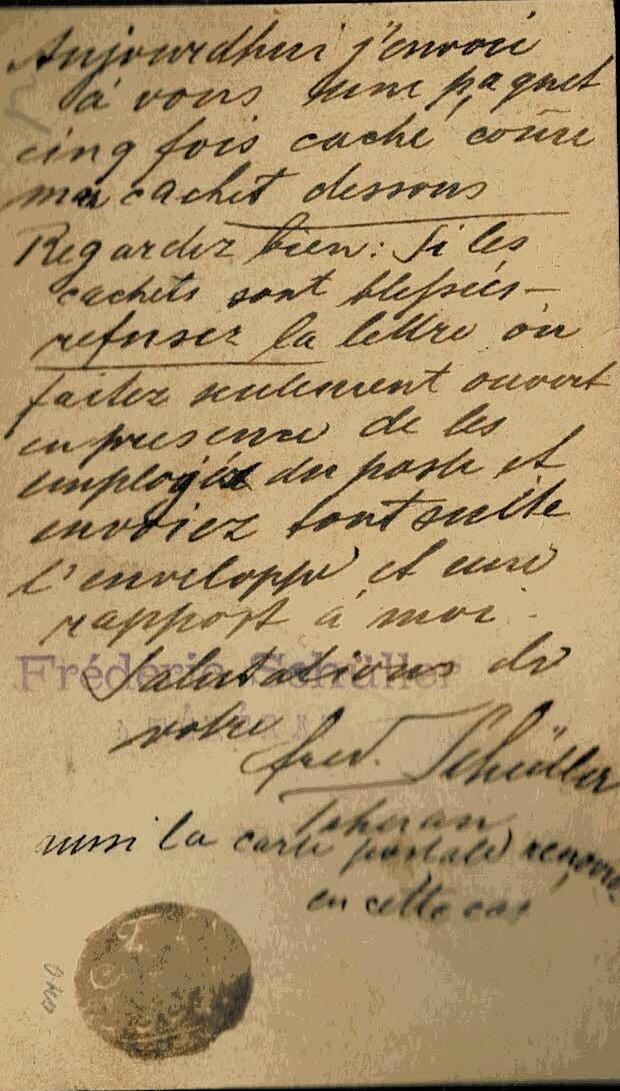 Aujourdhui j'envoie
à vous une paquet
cinq fois caché come
ma cachet dessous
Regardez bien: Si les
cachets sont blessées –
refuser la lettre ou
faitez seulement ouvert
en presence de les
employés du poste et
envoiez tout suite
l'enveloppe et une
rapport à moi.
Frédéric Schüller
Salutations de
votre
fred. Schüller
Teheran
aussi la carte postale
en cette cas